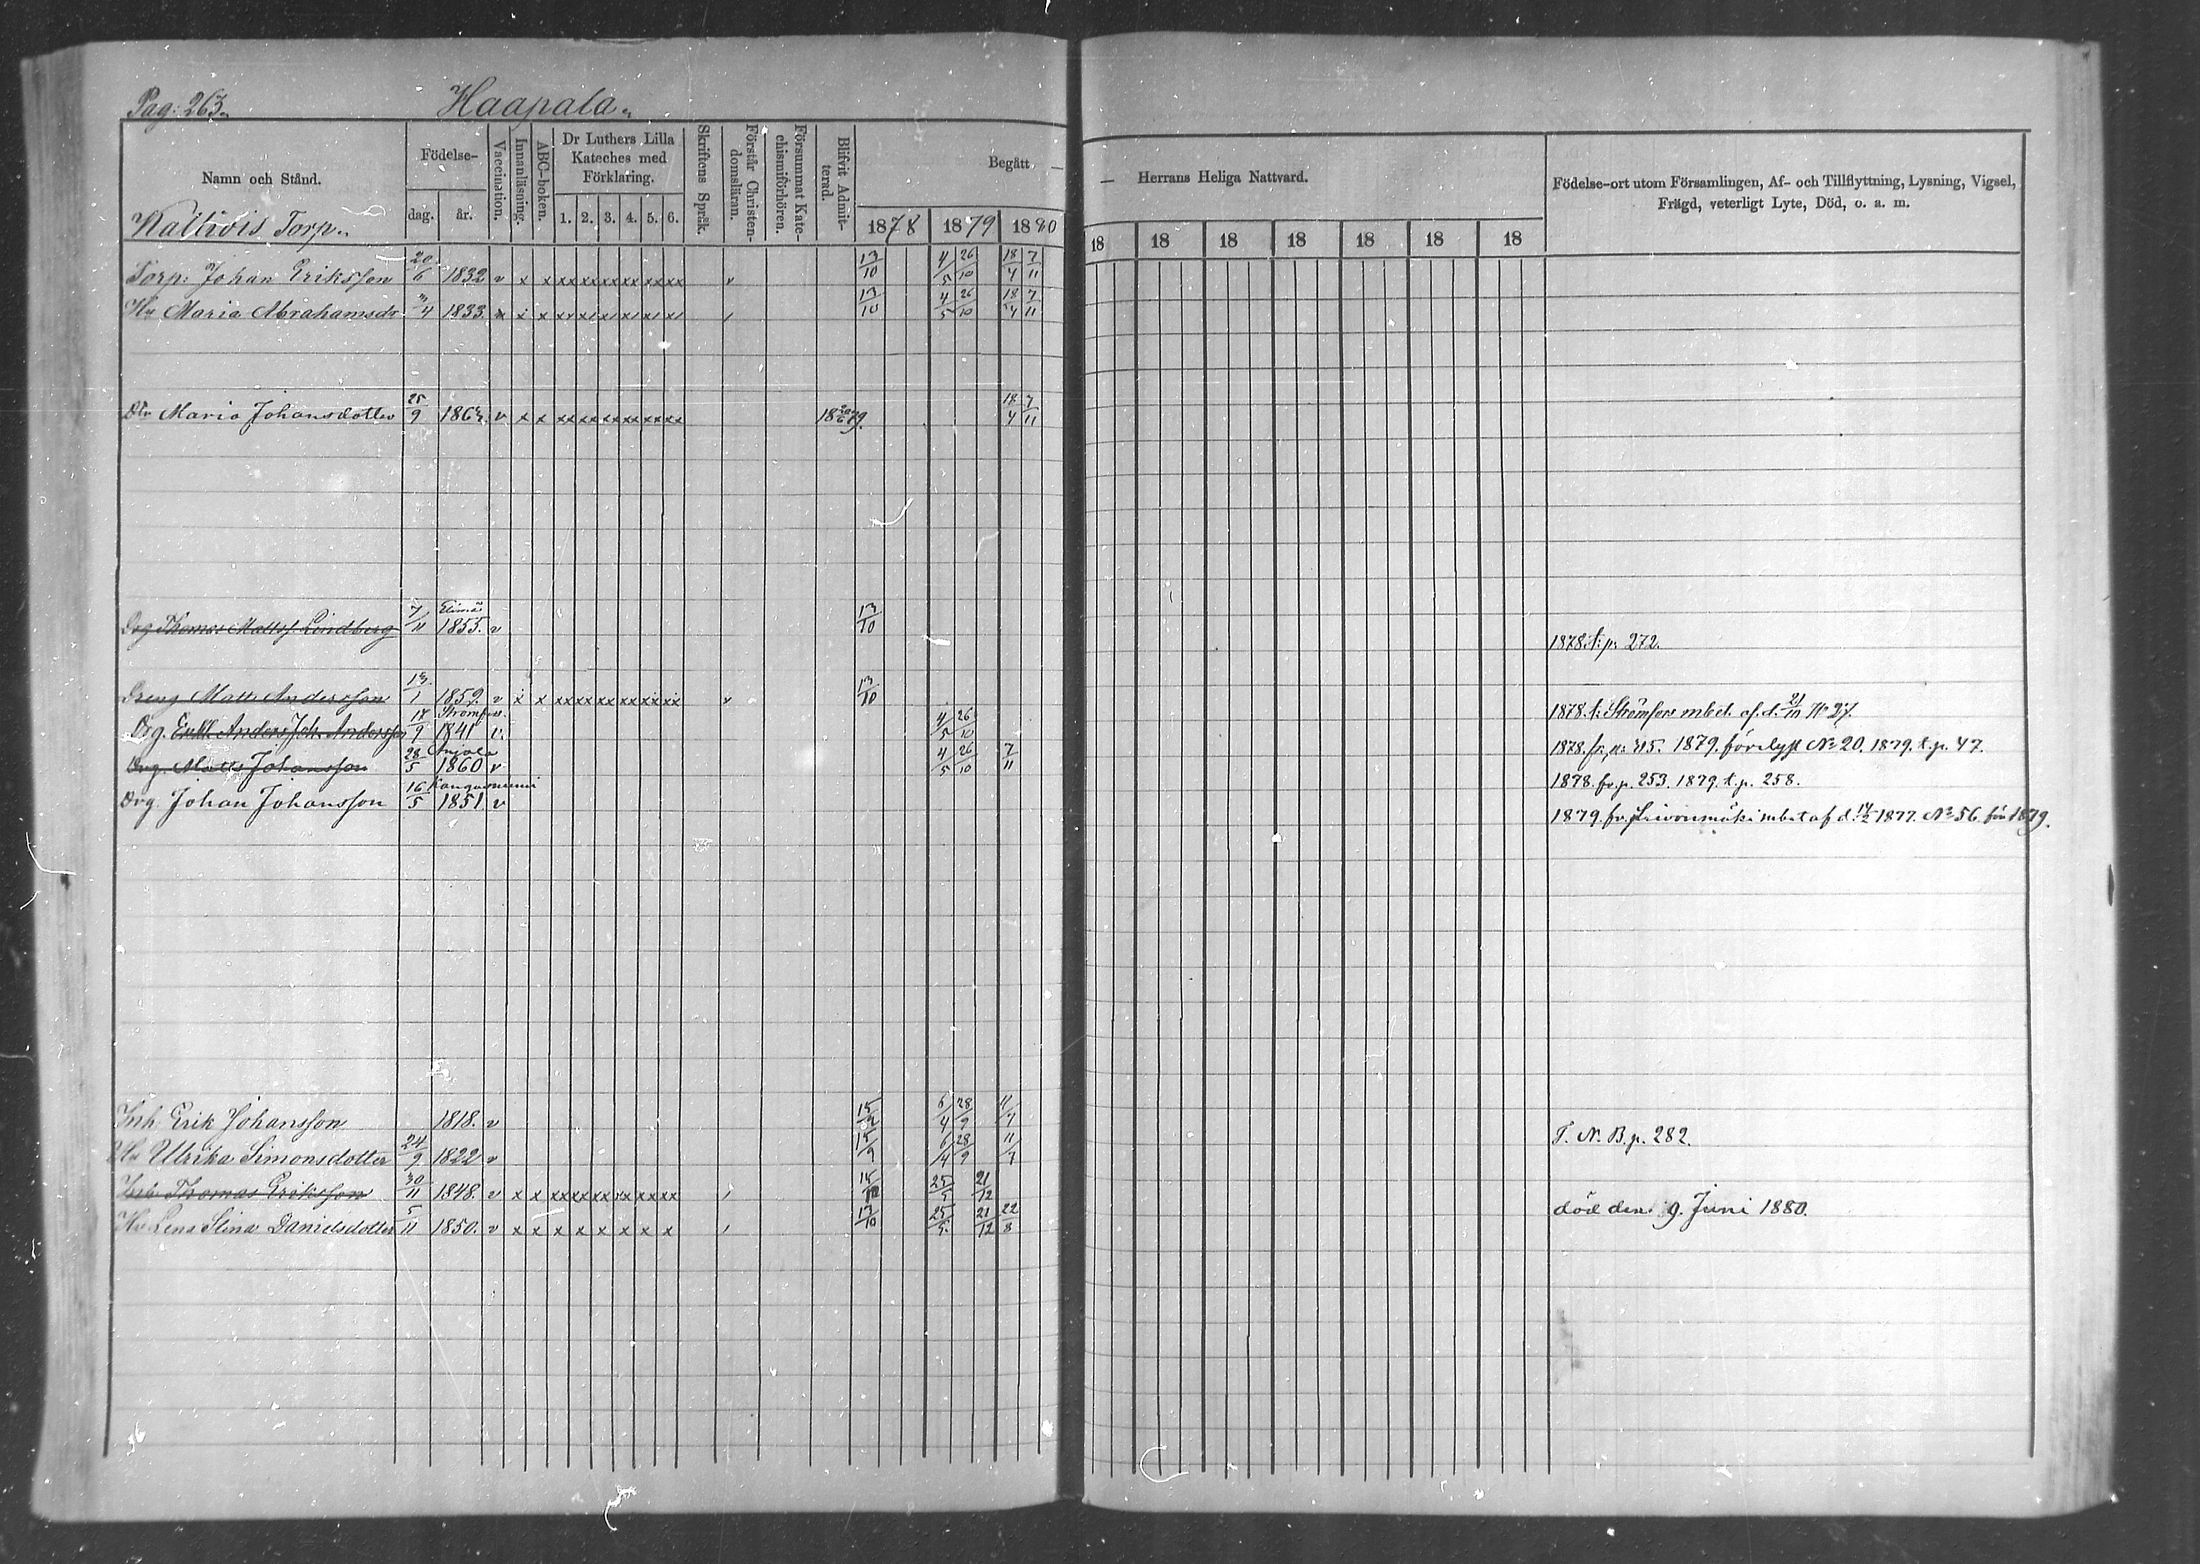 Pag: 263. Haapala.
Namn och Stånd. Födelse- dag. år. Vaccination. Innanläsning. ABC-boken. Dr Luthers Lilla Kateches med Förklaring. 1. 2. 3. 4. 5. 6. Skriftens Språk. Förstår Christendomsläran. Försummat Katechismiförhören. Blifvit Admitterad. Begått — 1878 1879 1880
— Herrans Heliga Nattvard. 18 18 18 18 18 18 18 Födelse-ort utom Församlingen, Af- och Tillflyttning, Lysning, Vigsel, Frägd, veterligt Lyte, Död, o. a. m.
Torp.
Torp: Johan Eriksson 20/6 1832 v x x xx xx xx xx xx xx v 13/10 4/5 26/10 18/4 7/11
Hu Maria Abrahamsdr 3/4 1833. x x 13/10 4/5 26/10 18/4 7/11
Dtr Maria Johansdotter 25/9 v x x xx xx xx xx xx xx 18 79. 18/4 7/11
Drg Thomas Matts. Lindberg 7/11 Elimä 1855. v 13/10 1878. t. p. 272.
Dreng Matts Andersson 13/1 1859. v x x xx xx xx xx xx xx v 13/10 1878. t. Strömfors mbet af. d. 21/10 No 27.
Drg. Anders Joh. Andersson 17/9 Strömfors. 1841 v. 4/5 26/10 1878. fr. p. 415. 1879. förelyst No 20. 1879. t. p. 47.
Drg. Matts Johansson 28/5 Anjala 1860 v 4/5 26/10 7/11 1878. fr. p. 253. 1879. t. p. 258.
Drg. Johan Johansson 16/5 Kangasniemi 1851. v 1879. fr. Leivonmäki mbet af d. 1877. No 56 för 1879.
Inh Erik Johansson 1818. v 15/9 6/4 28/9 11/7 T. N. B. p. 282.
Hu Ulrika Simonsdotter 24/9 1822 v 15/9 6/4 28/9 11/7
Inh Thomas Eriksson 30/11 1848. v x x xx xx xx xx xx xx 25/5 21/12 död den 9. Juni 1880.
Hu Lena Stina Danielsdotter 5/11 1850. v x x x x x x x x 13/10 25/5. 21/12 22/8